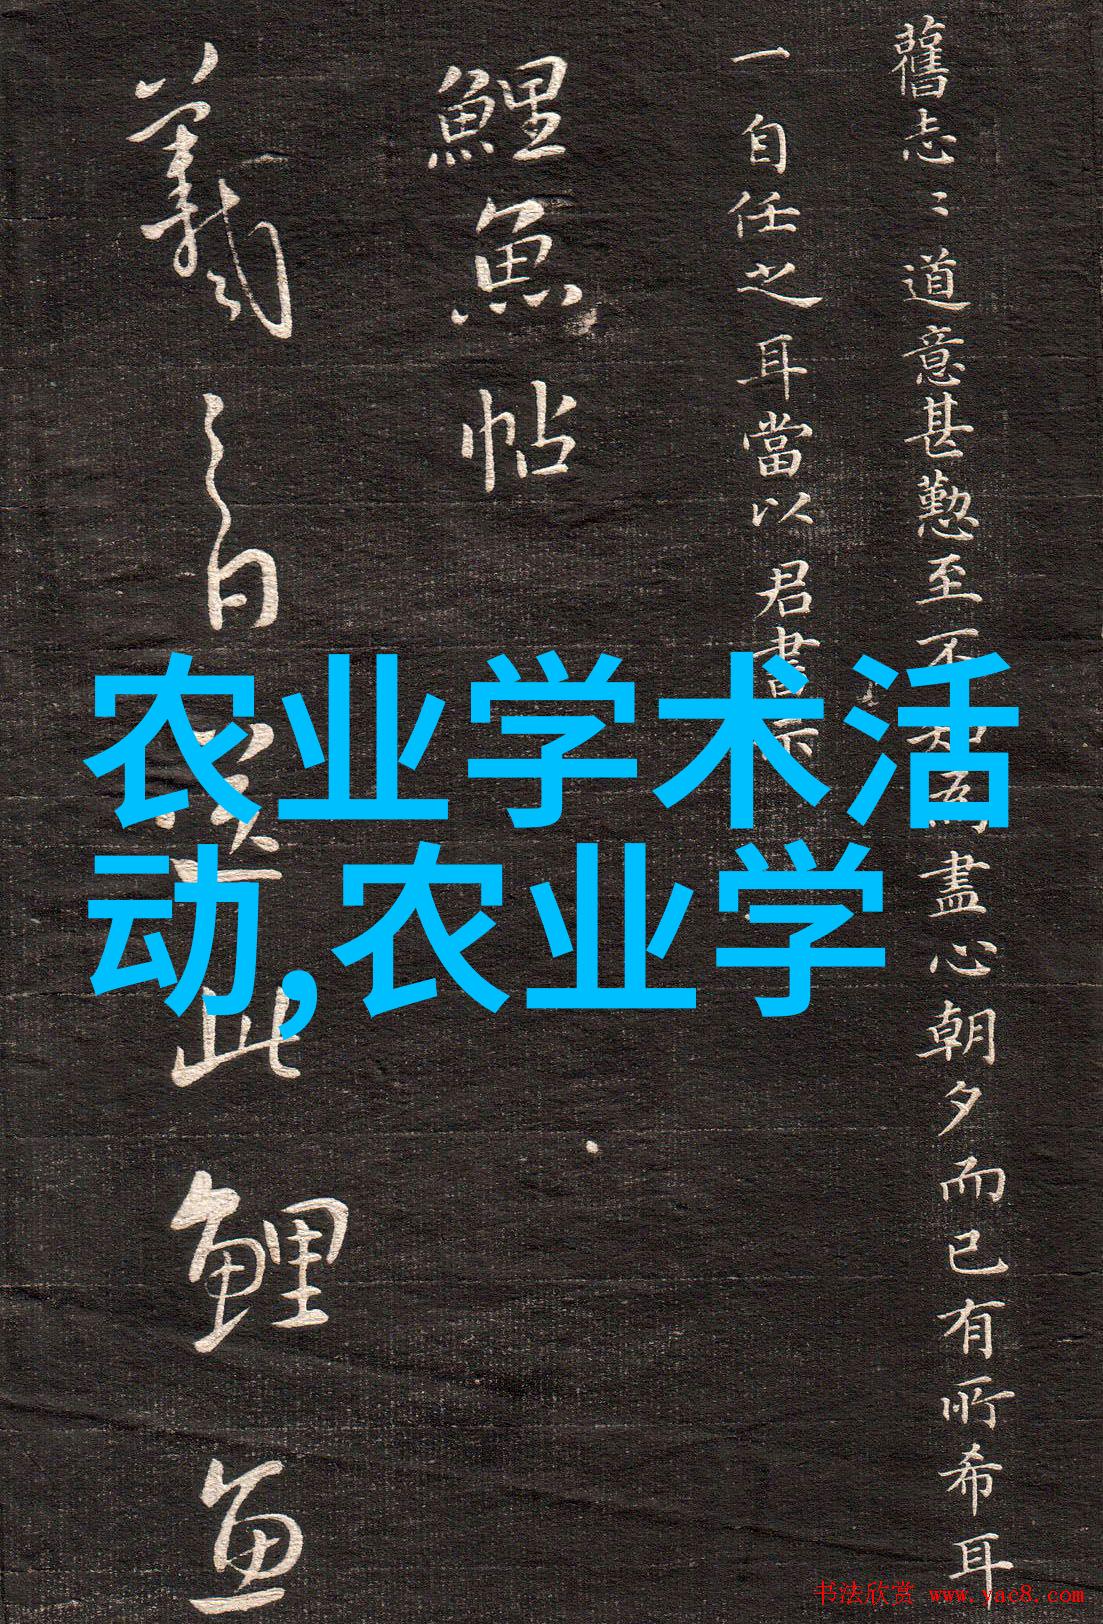 舊志〻道意甚懃至不知為盡心朝夕而已有所希耳
一自任之耳當以君書示
鯉魚帖
羲之白
此鯉魚
农业学术活
动,农业学
书法欣赏 www.yac8.com